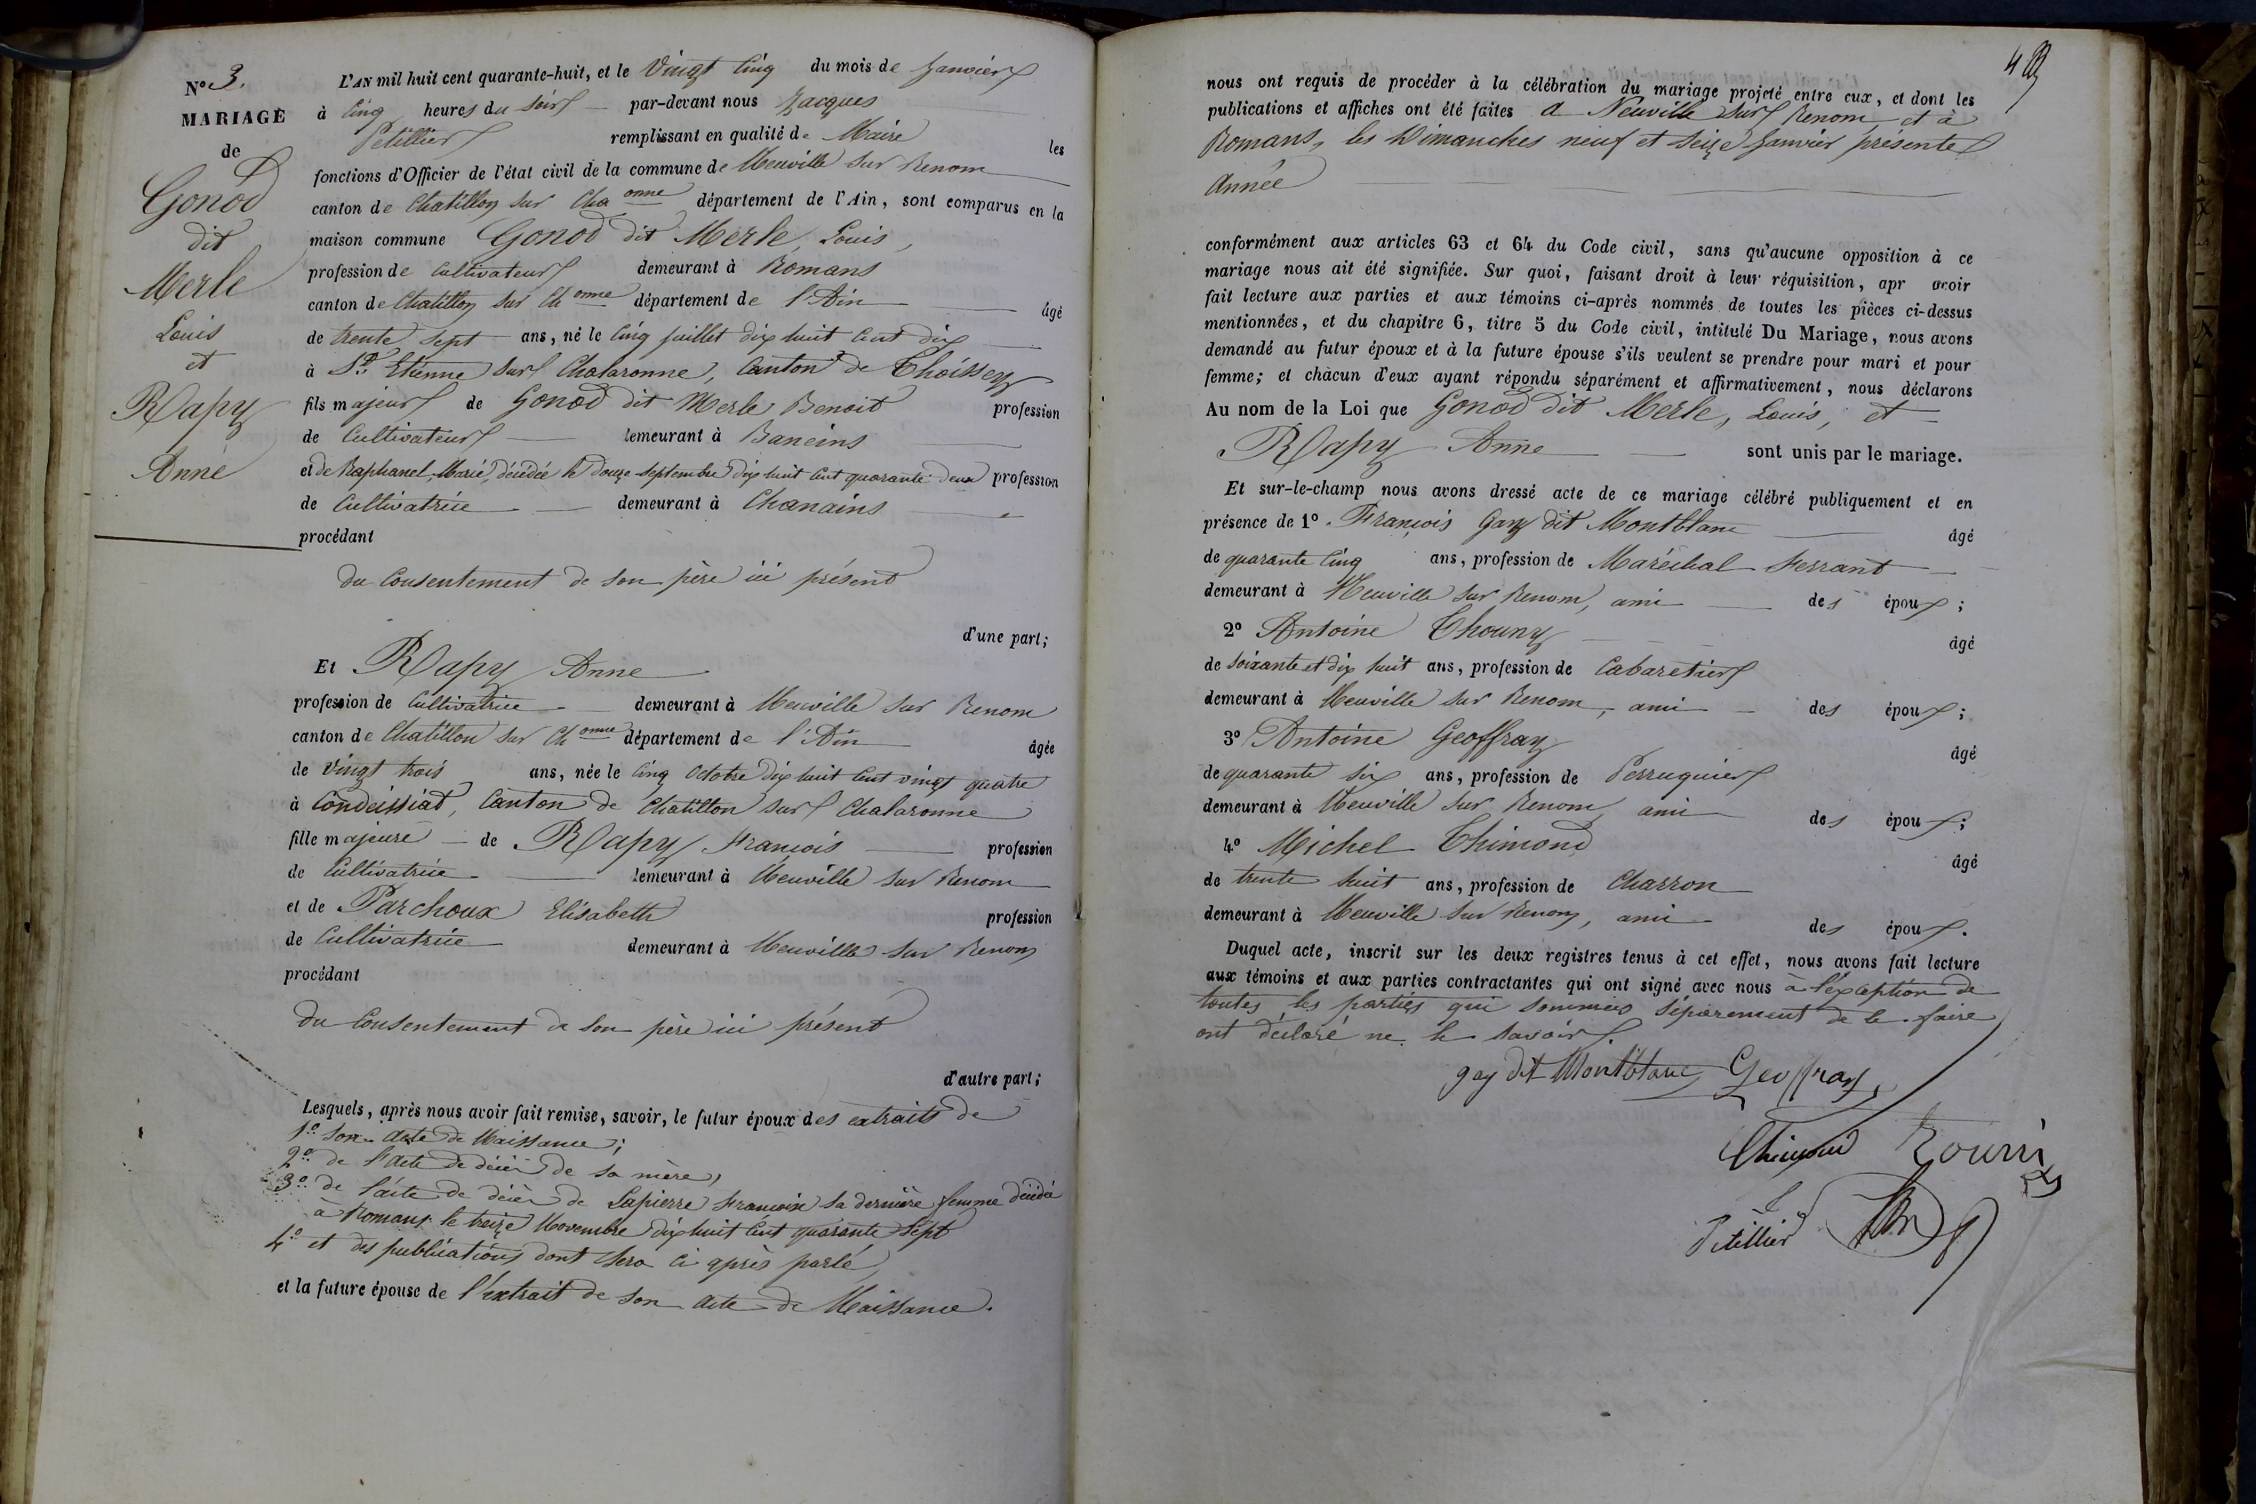 No 3.
MARIAGE
de
Gonod
dit
Merle
Louis
et
Rapy
Anne
L'AN mil huit cent quarante-huit, et le Vingt Cinq du mois de Janvier
à Cinq heures du Soir par-devant nous Jacques
Petillier remplissant en qualité de Maire les
fonctions d'Officier de l'état civil de la commune de Neuville sur Renom
canton de Chatillon sur Cha onne département de l'Ain, sont comparus en la
maison commune Gonod dit Merle, Louis,
profession de Cultivateur demeurant à Romans
canton de Chatillon sur Ch onne département de l'Ain âgé
de trente sept ans, né le Cinq juillet dix huit Cent dix
à St. Etienne sur Chalaronne, Canton de Thoissey
fils majeur de Gonod dit Merle Benoit profession
de Cultivateur demeurant à Baneins
et de Raphanel, Marie, décédée le douze Septembre dix huit Cent quarante deux profession
de Cultivatrice demeurant à Chanains
procédant
du Consentement de son père ici présent
d'une part;
Et Rapy Anne
profession de Cultivatrice demeurant à Neuville sur Renom
canton de Chatillon sur Ch onne département de l'Ain âgée
de Vingt trois ans, née le Cinq Octobre Dix huit Cent vingt quatre
à Condeissiat, Canton de Chatillon sur Chalaronne
fille majeure de Rapy François profession
de Cultivatrice demeurant à Neuville sur Renom
et de Parchoux Elisabeth profession
de Cultivatrice demeurant à Neuville sur Renom
procédant
du Consentement de son père ici présent
d'autre part;
Lesquels, après nous avoir fait remise, savoir, le futur époux des extraits de
1o. son acte de Naissance;
2o. de l'acte de décès de sa mère,
3o. de l'acte de décès de Lapierre Françoise sa dernière femme décédée
à Romans le treize Novembre dix huit Cent quarante Sept
4o et des publications dont sera ci après parlé,
et la future épouse de l'extrait de son acte de Naissance.
4
nous ont requis de procéder à la célébration du mariage projeté entre eux, et dont les
publications et affiches ont été faites à Neuville sur Renom et à
Romans, les Dimanches neuf et seize Janvier présente
Année
conformément aux articles 63 et 64 du Code civil, sans qu'aucune opposition à ce
mariage nous ait été signifiée. Sur quoi, faisant droit à leur réquisition, apr avoir
fait lecture aux parties et aux témoins ci-après nommés de toutes les pièces ci-dessus
mentionnées, et du chapitre 6, titre 5 du Code civil, intitulé Du Mariage, nous avons
demandé au futur époux et à la future épouse s'ils veulent se prendre pour mari et pour
femme; et chacun d'eux ayant répondu séparément et affirmativement, nous déclarons
Au nom de la Loi que Gonod dit Merle, Louis, et
Rapy Anne sont unis par le mariage.
Et sur-le-champ nous avons dressé acte de ce mariage célébré publiquement et en
présence de 1o. François Gay dit Montblanc âgé
de quarante Cinq ans, profession de Maréchal ferrant
demeurant à Neuville sur Renom, ami des époux;
2o Antoine Thouny âgé
de Soixante et dix huit ans, profession de Cabaretier
demeurant à Neuville sur Renom, ami des époux;
3o Antoine Geoffray âgé
de quarante six ans, profession de Perruquier
demeurant à Neuville sur Renom, ami des époux;
4o Michel Thimond âgé
de trente huit ans, profession de Charron
demeurant à Neuville sur Renom, ami des époux.
Duquel acte, inscrit sur les deux registres tenus à cet effet, nous avons fait lecture
aux témoins et aux parties contractantes qui ont signé avec nous à l'exception de
toutes les parties qui sommés séparément de le faire
ont déclaré ne le savoir.
gay dit Montblanc Geoffray
Thimond
Petillier